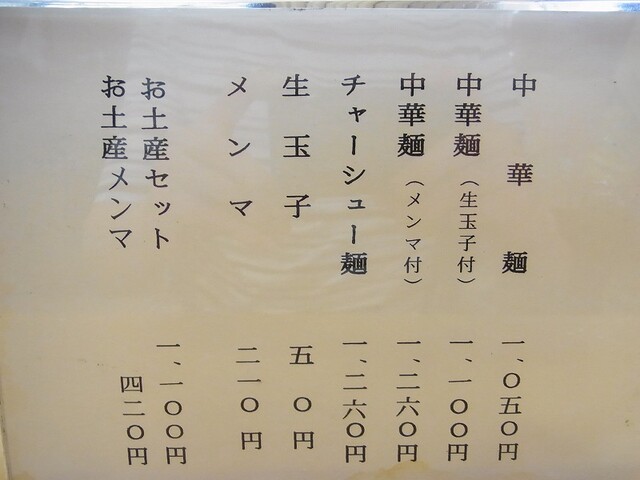 中華麺 一、〇五〇円
中華麺（生玉子付） 一、一〇〇円
中華麺（メンマ付） 一、二六〇円
チャーシュー麺 一、二六〇円
生玉子 五〇円
メンマ 二一〇円
お土産セット 一、一〇〇円
お土産メンマ 四二〇円